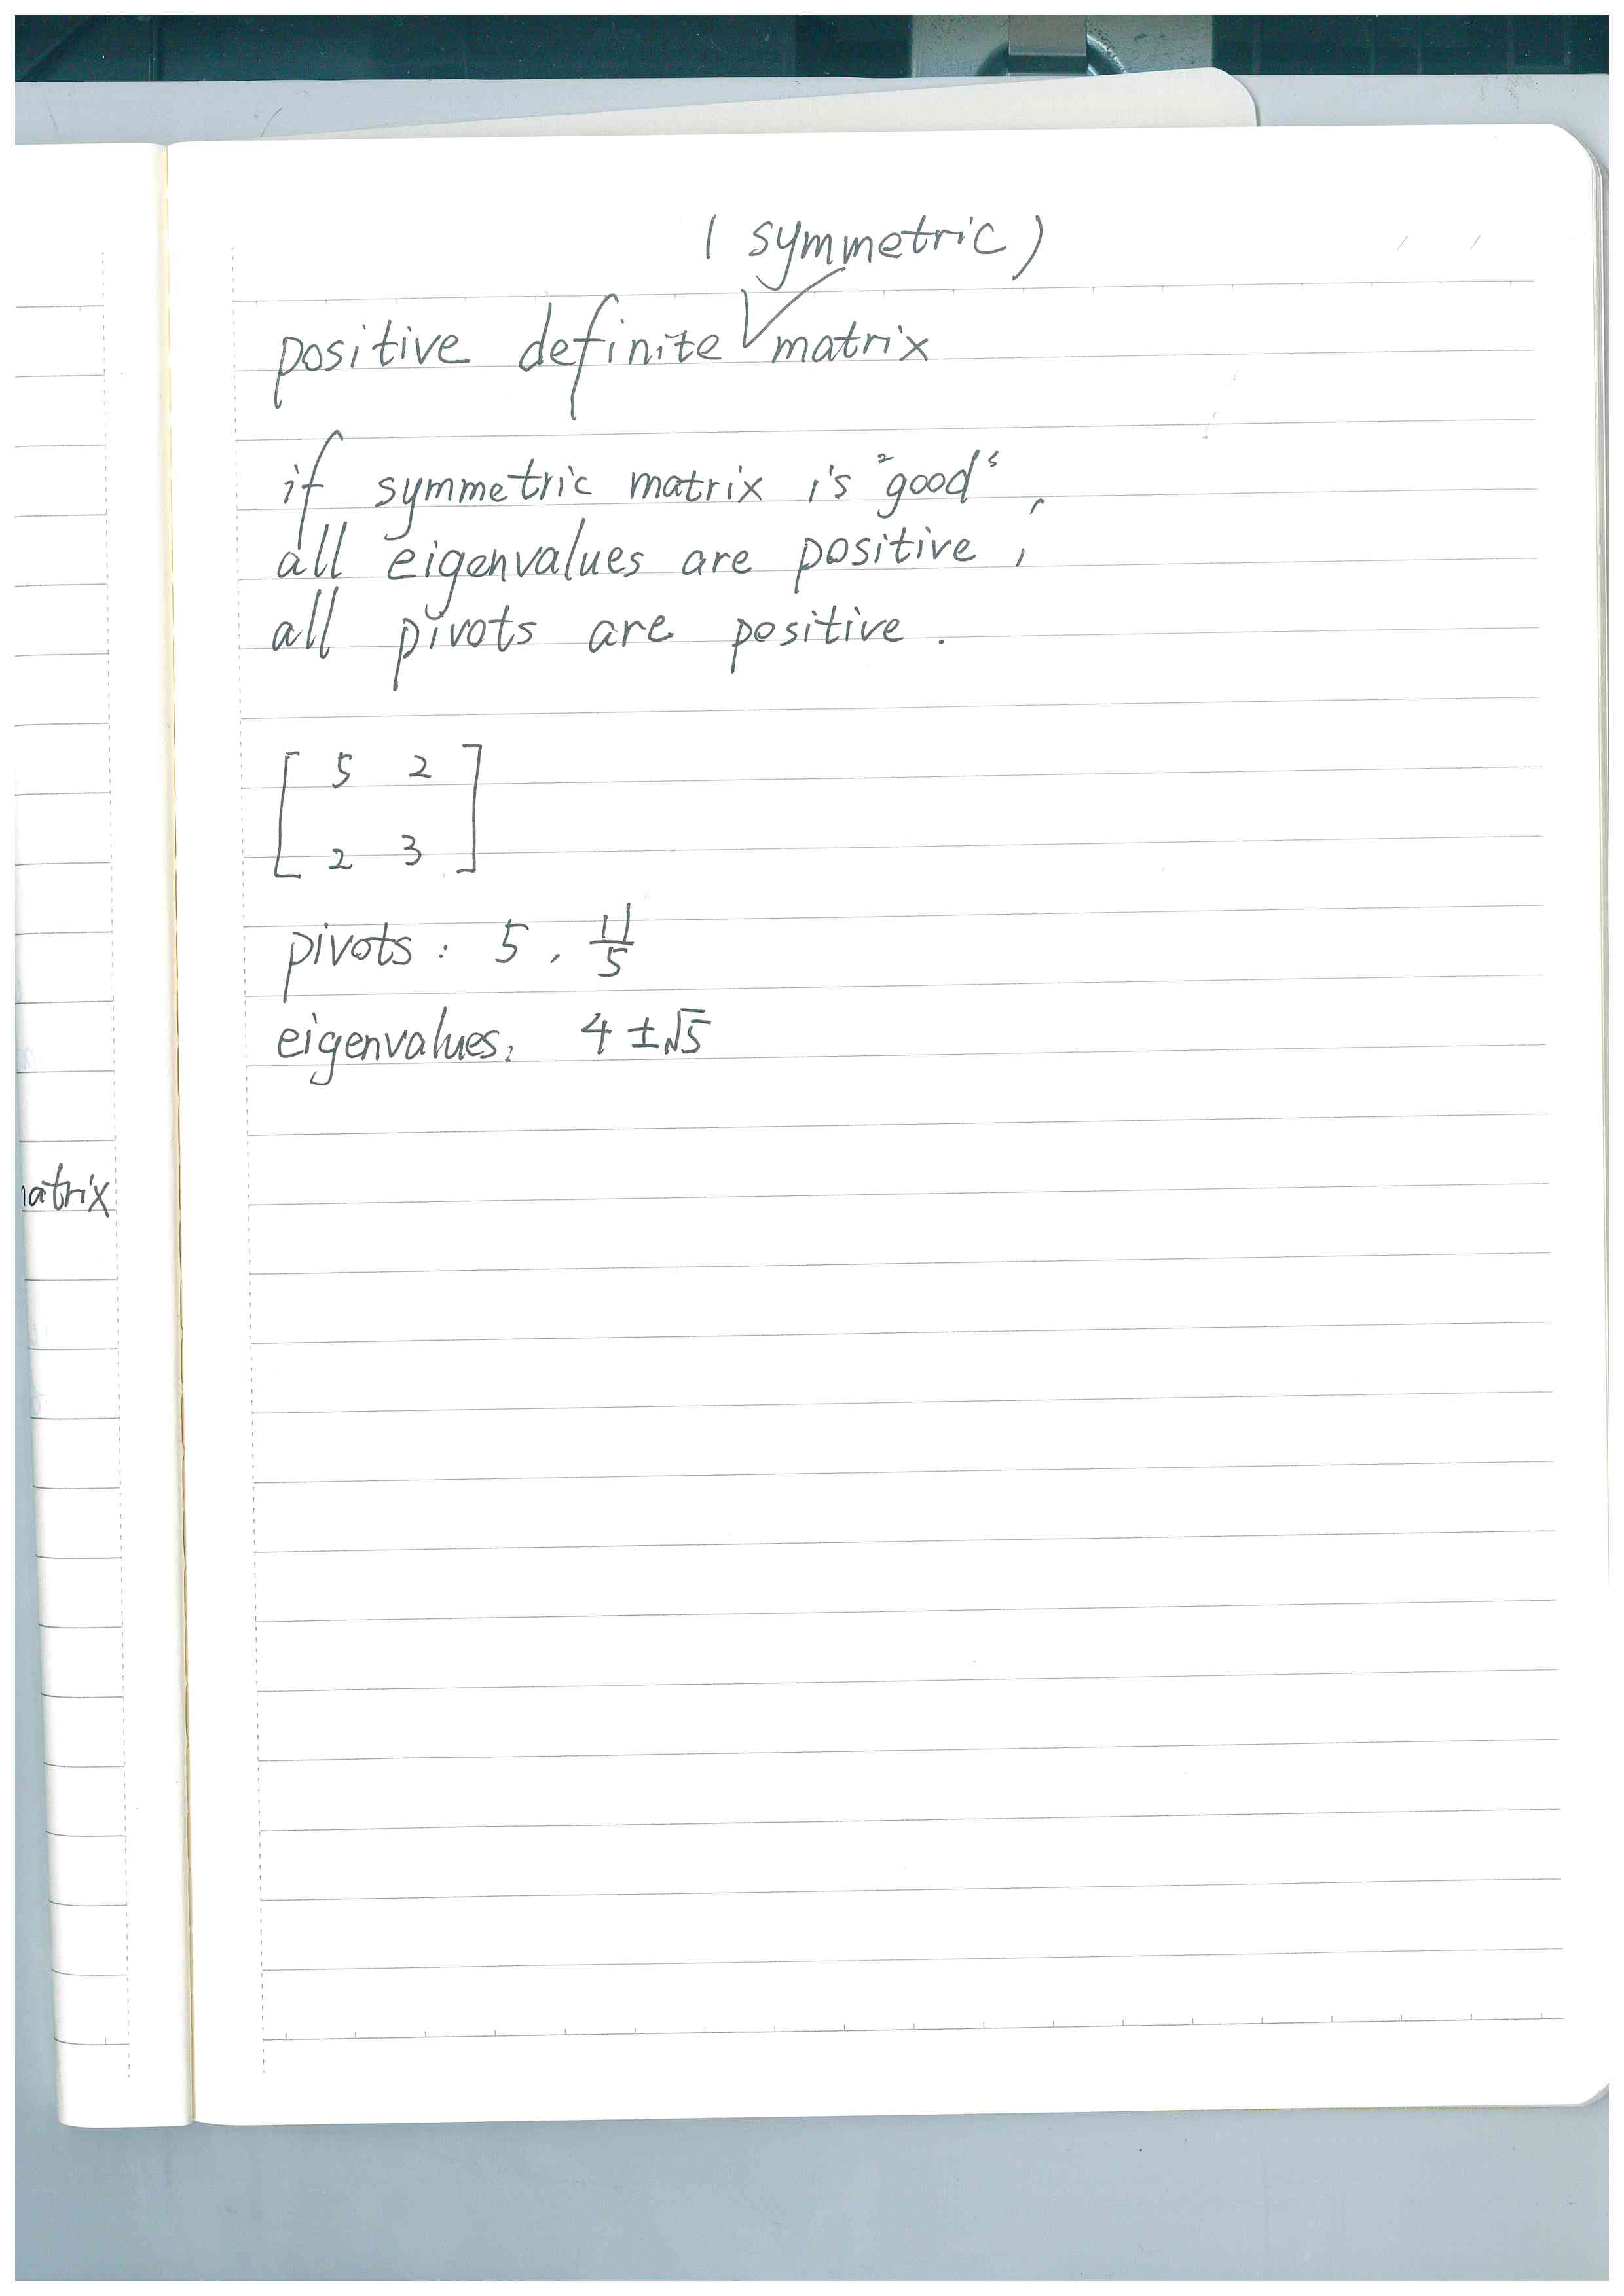 ( symmetric )
positive definite matrix
if symmetric matrix is "good",
all eigenvalues are positive,
all pivots are positive.
[ 5 2
2 3 ]
pivots: 5, 11/5
eigenvalues: 4 ± √5
atrix